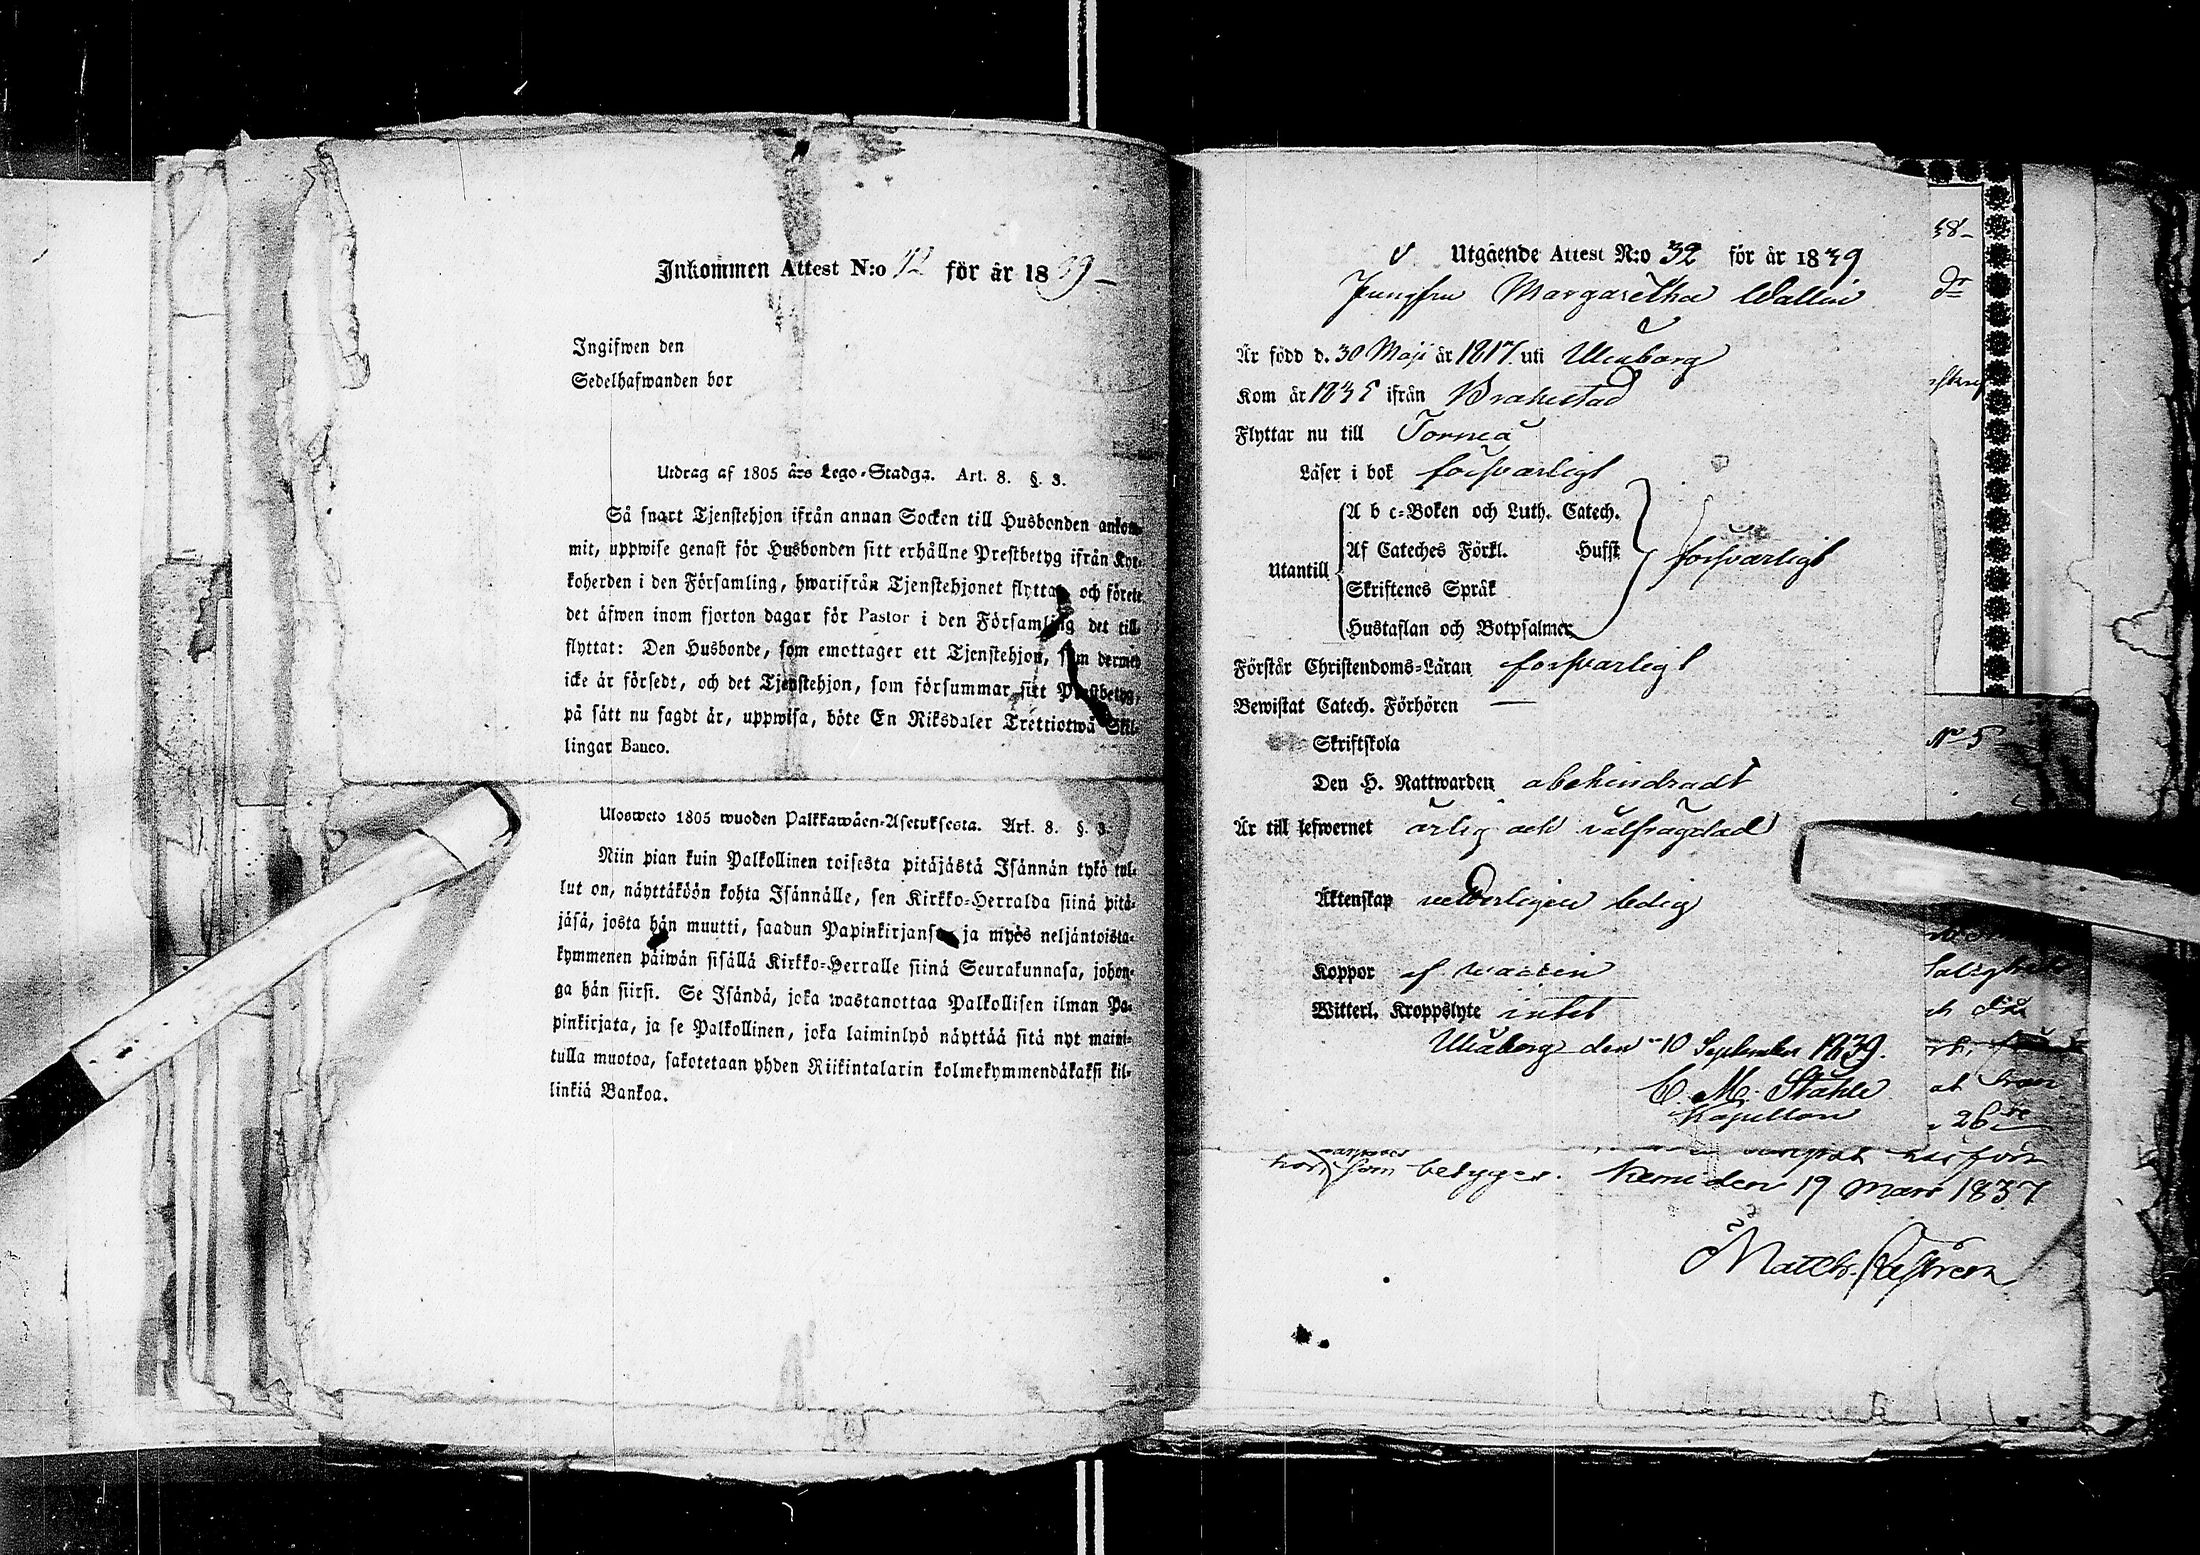 Inkommen Attest N:o 12 för år 1839
Ingifwen den
Sedelhafwanden bor
Utdrag af 1805 års Lego-Stadga. Art. 8. §. 3.
Så snart Tjenstehjon ifrån annan Socken till Husbonden ankom-
mit, uppwise genast för Husbonden sitt erhållne Prestbetyg ifrån Kyr-
koherden i den Församling, hwarifrån Tjenstehjonet flyttat och förete
det äfwen inom fjorton dagar för Pastor i den Församling det till-
flyttat: Den Husbonde, som emottager ett Tjenstehjon, som dermed
icke är försedt, och det Tjenstehjon, som försummar sitt Prestbetyg,
på sätt nu sagdt är, uppwisa, böte En Riksdaler Trettiotwå Skil-
lingar Banco.
Ulosweto 1805 wuoden Palkkawäen-Asetuksesta. Art. 8. §. 3.
Niin pian kuin Palkollinen toisesta pitäjästä Isännän tykö tul-
lut on, näyttäköön kohta Isännälle, sen Kirkko-Herralda siinä pitä-
jäsä, josta hän muutti, saadun Papinkirjansa ja myös neljäntoista-
kymmenen päiwän sisällä Kirkko-Herralle siinä Seurakunnasa, johon-
ga hän siirsi. Se Isändä, joka wastanottaa Palkollisen ilman Pa-
pinkirjata, ja se Palkollinen, joka laiminlyö näyttää sitä nyt maini-
tulla muotoa, sakotetaan yhden Riikintalarin kolmekymmendäkaksi kil-
linkiä Bankoa.
Utgående Attest N:o 32 för år 1839
Jungfru Margaretha Wallin
Är född d. 30 Maji år 1817 uti Uleåborg
Kom år 1835 ifrån Brahestad
Flyttar nu till Torneå
Läser i bok försvarligt
Utantill
A b c-Boken och Luth. Catech.
Af Cateches Förkl. Hufst
Skriftenes Språk
Hustaflan och Botpsalmer
försvarligt
Förstår Christendoms-Läran försvarligt
Bewistat Catech. Förhören —
Skriftskola
Den H. Nattwarden obehindradt
Är till lefwernet ärlig och välfrägdad
Äktenskap veterligen ledig
Koppor af
Witterl. Kroppslyte intet
Uleåborg den 10 September 1839.
C. M. Ståhle
Kapellan
38-
dr
No 5
Salighet
at från
26
som betyger. Kemi den 19 Mars 1837
Matth. Castrén